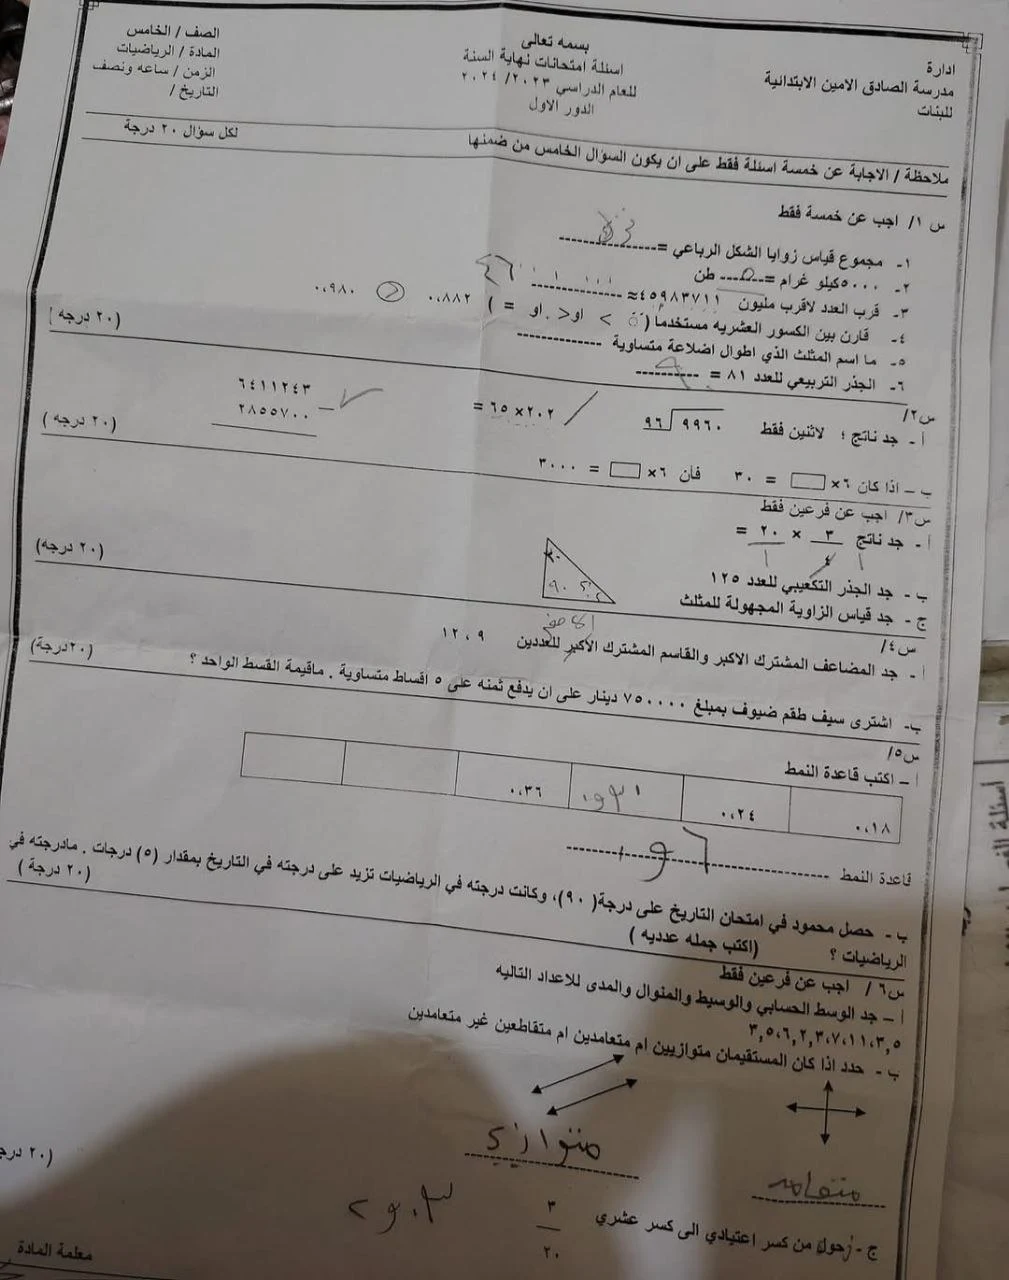 ادارة
مدرسة الصادق الامين الابتدائية
للبنات
بسمه تعالى
اسئلة امتحانات نهاية السنة
للعام الدراسي ٢٠٢٣/ ٢٠٢٤
الدور الاول
الصف / الخامس
المادة / الرياضيات
الزمن / ساعه ونصف
التاريخ /
ملاحظة / الاجابة عن خمسة اسئلة فقط على ان يكون السؤال الخامس من ضمنها لكل سؤال ٢٠ درجة
س ١/ اجب عن خمسة فقط
١- مجموع قياس زوايا الشكل الرباعي =
٢- ٥٠٠٠كيلو غرام = ٥ طن
٣- قرب العدد لاقرب مليون ٤٥٩٨٣٧١١ ≈ ٤٦٠٠٠٠٠٠
٤- قارن بين الكسور العشريه مستخدما ( < او > او = ) ٠،٨٨٢ > ٠،٩٨٠
٥- ما اسم المثلث الذي اطوال اضلاعة متساوية
٦- الجذر التربيعي للعدد ٨١ = ٩ (٢٠ درجه)
س٢/
أ - جد ناتج ؛ لاثنين فقط ٩٦ ٩٩٦٠ ٢٠٢×٦٥ = ٦٤١١٢٤٣ - ٢٨٥٥٧٠٠
ب - اذا كان ٦× = ٣٠ فان ٦× = ٣٠٠٠ (٢٠ درجه)
س٣/ اجب عن فرعين فقط
أ - جد ناتج ٣/٤ × ٢٠/١ =
ب - جد الجذر التكعيبي للعدد ١٢٥
ج - جد قياس الزاوية المجهولة للمثلث ٩٠ ؟ (٢٠ درجه)
س٤/
أ - جد المضاعف المشترك الاكبر والقاسم المشترك الاكبر للعددين ٩ ، ١٢
ب- اشترى سيف طقم ضيوف بمبلغ ٧٥٠٠٠٠ دينار على ان يدفع ثمنه على ٥ اقساط متساوية . ماقيمة القسط الواحد ؟ (٢٠درجة)
س٥/
أ – اكتب قاعدة النمط
٠،١٨ ٠،٢٤ ٠,٣٠ ٠،٣٦
قاعدة النمط
ب - حصل محمود في امتحان التاريخ على درجة( ٩٠)، وكانت درجته في الرياضيات تزيد على درجته في التاريخ بمقدار (٥) درجات . مادرجته في
الرياضيات ؟ (اكتب جمله عدديه ) (٢٠ درجة )
س٦ / اجب عن فرعين فقط
أ – جد الوسط الحسابي والوسيط والمنوال والمدى للاعداد التاليه
٣,٥،٦,٢,٣،٧،١١،٣,٥
ب - حدد اذا كان المستقيمان متوازيين ام متعامدين ام متقاطعين غير متعامدين
متعامد متوازي
(٢٠ درج
ج - حول من كسر اعتيادي الى كسر عشري ٣/٢٠
معلمة المادة